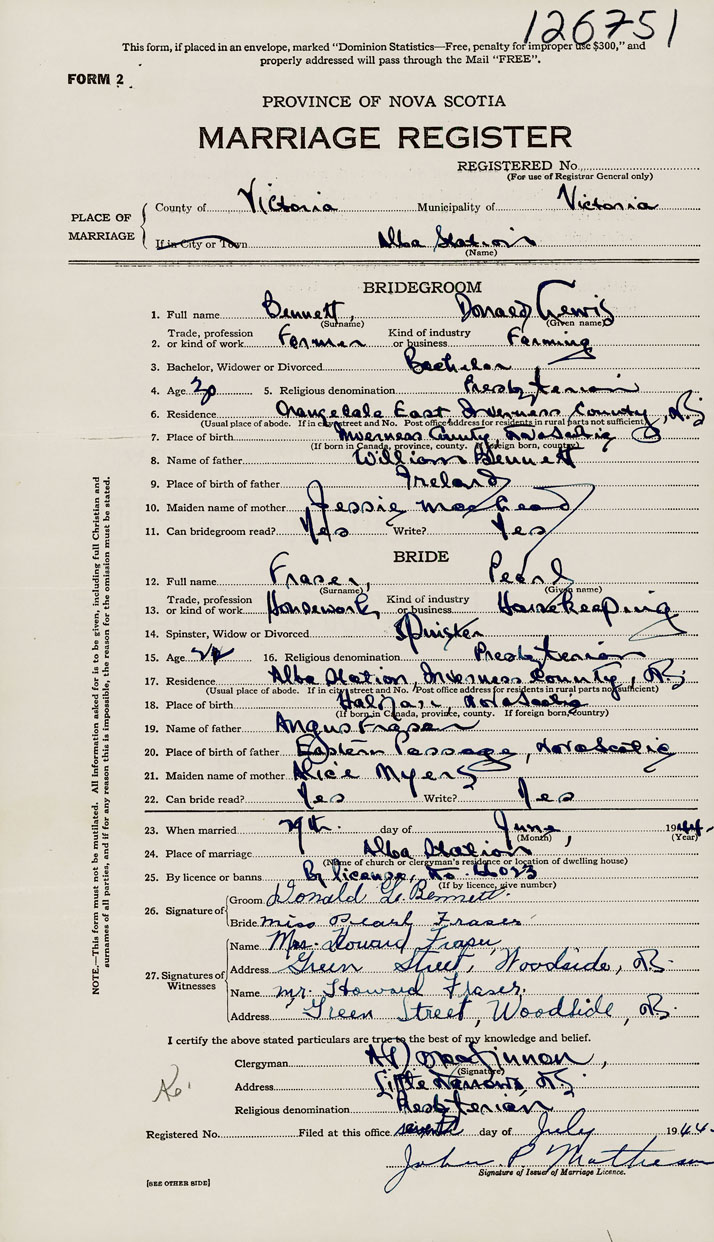 126751
This form, if placed in an envelope, marked "Dominion Statistics—Free, penalty for improper use $300," and
properly addressed will pass through the Mail "FREE".
FORM 2
PROVINCE OF NOVA SCOTIA
MARRIAGE REGISTER
REGISTERED No.
(For use of Registrar General only)
PLACE OF MARRIAGE
County of Victoria Municipality of Victoria
If in City or Town Alba Station
(Name)
BRIDEGROOM
1. Full name Bennett, Donald Lewis
(Surname) (Given name)
2. Trade, profession or kind of work Farmer Kind of industry or business Farming
3. Bachelor, Widower or Divorced Bachelor
4. Age 30 5. Religious denomination Presbyterian
6. Residence Orangedale East Inverness County, N.S.
(Usual place of abode. If in city street and No. Post office address for residents in rural parts not sufficient)
7. Place of birth Inverness County, Nova Scotia
(If born in Canada, province, county. If foreign born, country)
8. Name of father William Bennett
9. Place of birth of father Ireland
10. Maiden name of mother Jessie MacLeod
11. Can bridegroom read? Yes Write? Yes
BRIDE
12. Full name Fraser, Pearl
(Surname) (Given name)
13. Trade, profession or kind of work Housework Kind of industry or business Housekeeping
14. Spinster, Widow or Divorced Spinster
15. Age 16. Religious denomination Presbyterian
17. Residence Alba Station, Inverness County, N.S.
(Usual place of abode. If in city street and No. Post office address for residents in rural parts not sufficient)
18. Place of birth Halifax, Nova Scotia
(If born in Canada, province, county. If foreign born, country)
19. Name of father Angus Fraser
20. Place of birth of father Eastern Passage, Nova Scotia
21. Maiden name of mother Alice Myers
22. Can bride read? Yes Write? Yes
23. When married 29th. day of June, 1944.
(Month) (Year)
24. Place of marriage Alba Station
(Name of church or clergyman's residence or location of dwelling house)
25. By licence or banns By license, No.
(If by licence, give number)
26. Signature of
Groom Donald L. Bennett.
Bride Miss Pearl Fraser
27. Signatures of Witnesses
Name Mrs. Howard Fraser
Address Green Street, Woodside, N.S.
Name Mr. Howard Fraser.
Address Green Street, Woodside, N.S.
I certify the above stated particulars are true to the best of my knowledge and belief.
Clergyman MacKinnon,
(Signature)
Address Little Narrows, N.S.
Religious denomination Presbyterian
Registered No. Filed at this office seventh day of July 1944.
John P. Matheson
Signature of Issuer of Marriage Licence.
[SEE OTHER SIDE]
NOTE.—This form must not be mutilated. All information asked for is to be given, including full Christian and
surnames of all parties, and if for any reason this is impossible, the reason for the omission must be stated.